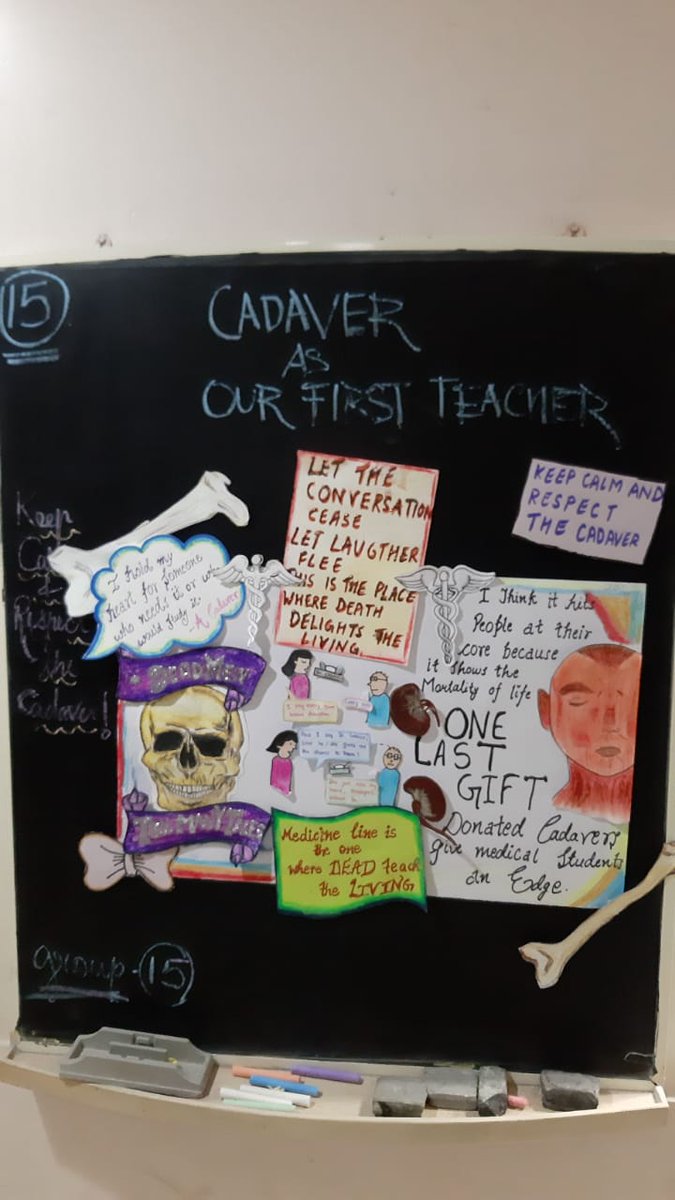 15
CADAVER
AS
OUR FIRST TEACHER
LET THE
CONVERSATION
CEASE
LET LAUGTHER
FLEE
THIS IS THE PLACE
WHERE DEATH
DELIGHTS THE
LIVING.
KEEP CALM AND
RESPECT
THE CADAVER
Keep
Respect
the
Cadaver!
I hold my
heart for someone
who needs it or who
would study it.
- A Cadaver
DEAD MEN
I Think it hits
People at their
core because
it shows the
Mortality of life
ONE
LAST
GIFT
Donated Cadavers
give medical students
an Edge.
Medicine line is
the one
where DEAD teach
the LIVING
group - 15